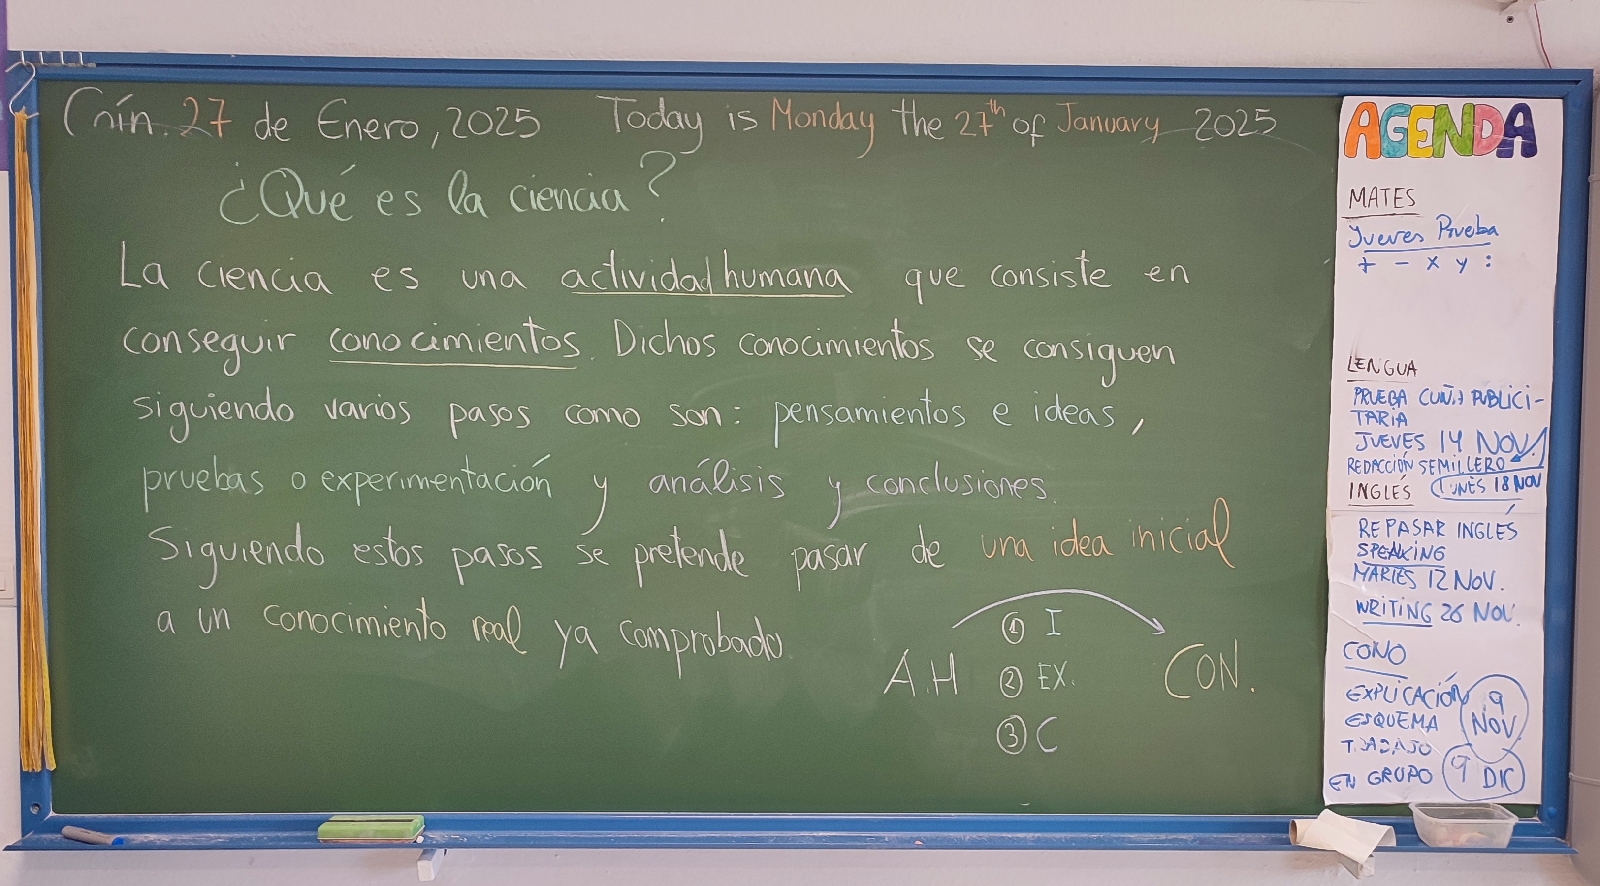 Coín. 27 de Enero, 2025 Today is Monday the 27th of January 2025
¿Qué es la ciencia?
La ciencia es una actividad humana que consiste en
conseguir conocimientos. Dichos conocimientos se consiguen
siguiendo varios pasos como son: pensamientos e ideas,
pruebas o experimentación y análisis y conclusiones.
Siguiendo estos pasos se pretende pasar de una idea inicial
a un conocimiento real ya comprobado.
A.H
① I
② EX.
③ C
CON.
AGENDA
MATES
Jueves Prueba
+ - x y :
LENGUA
PRUEBA CUÑA PUBLICI-
TARIA
JUEVES 14 NOV.
REDACCIÓN SEMILLERO
LUNES 18 NOV
INGLÉS
REPASAR INGLÉS
SPEAKING
MARTES 12 NOV.
WRITING 26 NOV.
CONO
EXPLICACIÓN 9
ESQUEMA NOV
TRABAJO
EN GRUPO 9 DIC